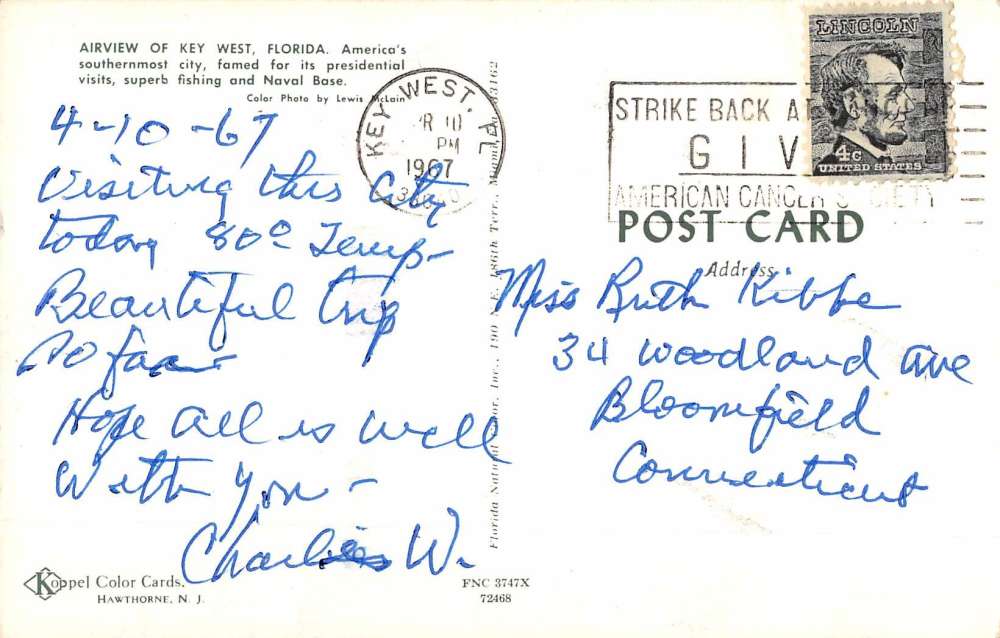 AIRVIEW OF KEY WEST, FLORIDA. America's
southernmost city, famed for its presidential
visits, superb fishing and Naval Base.
Color Photo by Lewis McLain
4-10-67
Visiting this City
today 80° Temp-
Beautiful trip
so far-
Hope all is well
With you-
Charlies W.
Koppel Color Cards.
HAWTHORNE, N. J.
KEY WEST, FL
PM
1967
Florida Natural Color, Inc., 190 N. E. 186th Terr., Miami, Fla. 33162
FNC 3747X
72468
STRIKE BACK
GIV
AMERICAN CANCER SOCIETY
LINCOLN
4c
UNITED STATES
POST CARD
Address
Miss Ruth Kibbe
34 Woodland Ave
Bloomfield
Connecticut